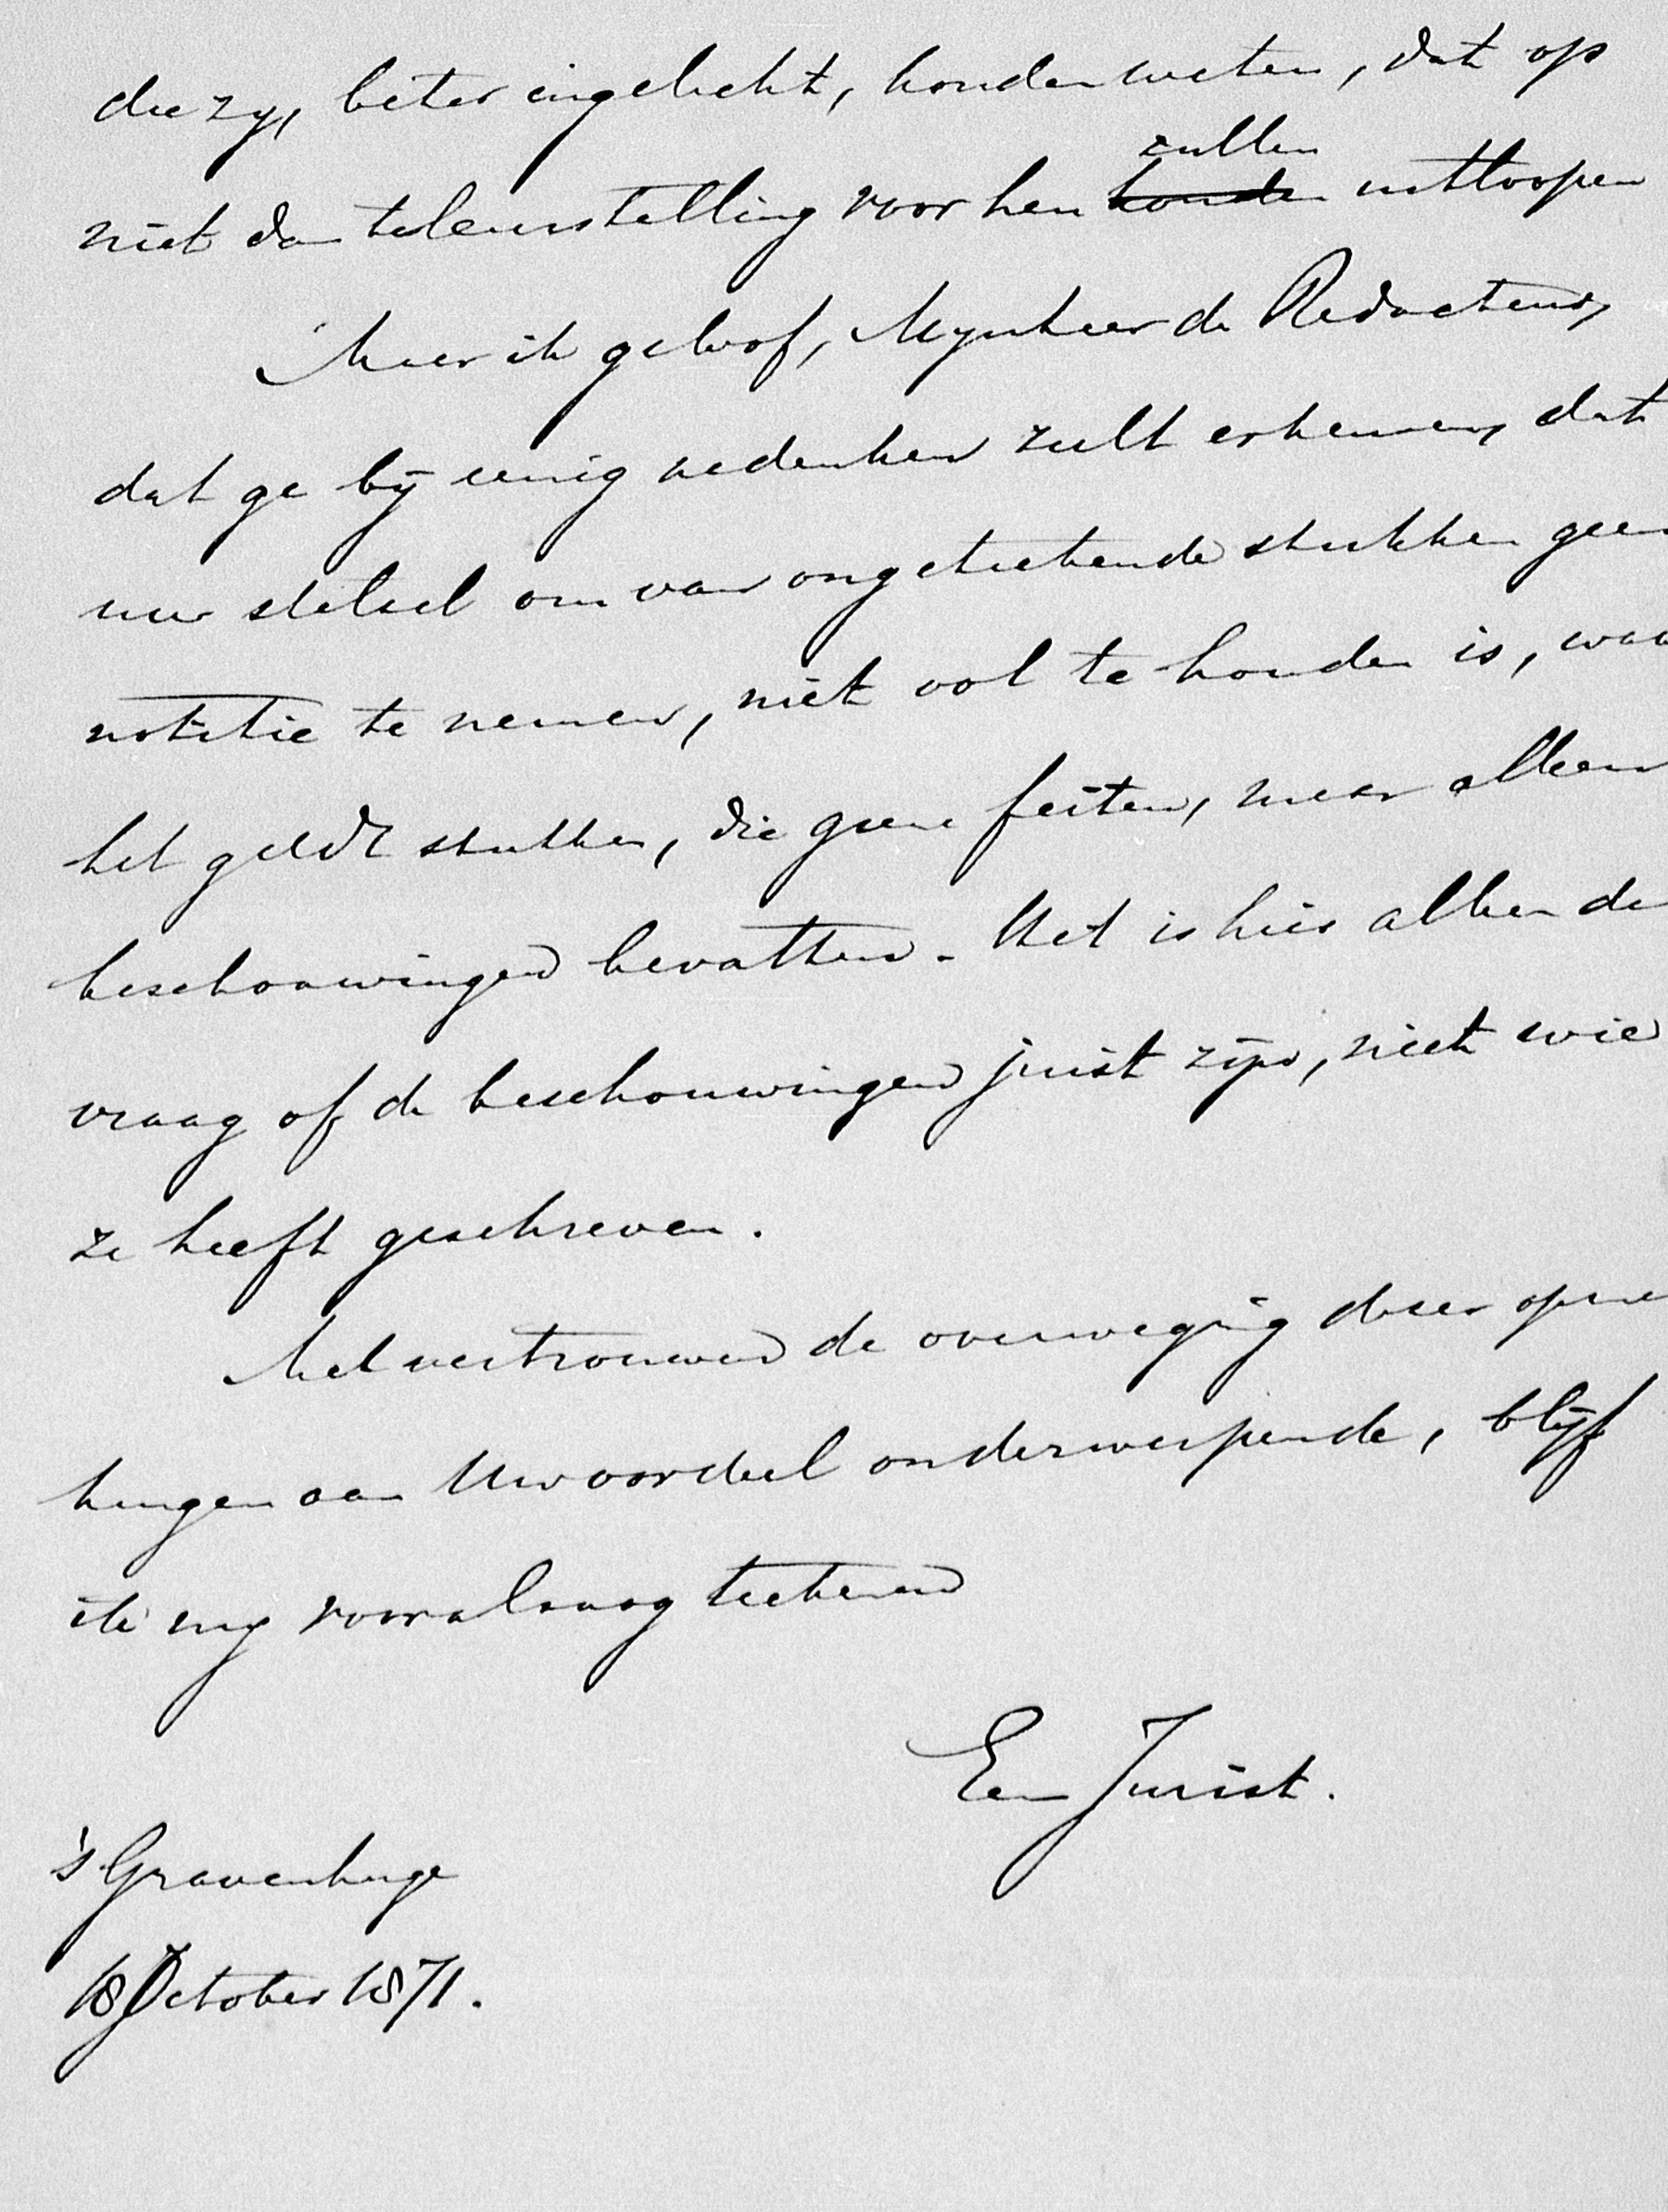 die zy, beter ingelicht, konden weten, dat op
zullen
niet dan teleurstelling voor hen konden uitloopen
Maar ik geloof, Mynheer de Redacteur,
dat ge bij eenig nadenken zult erkennen, dat
uw stelsel om van ongeteekende stukken geen
notitie te nemen, niet vol te houden is, waa
het geldt stukken, die geene feiten, maar alleen
beschouwingen bevatten. Het is hier alleen de
vraag of de beschouwingen juist zijn, niet wie
ze heeft geschreven.
Met vertrouwen de overweging dezer opme
kingen aan Uw oordeel onderwerpende, blijf
ik my vooralsnog teekenen
Een Jurist.
's Gravenhage
18 October 1871.